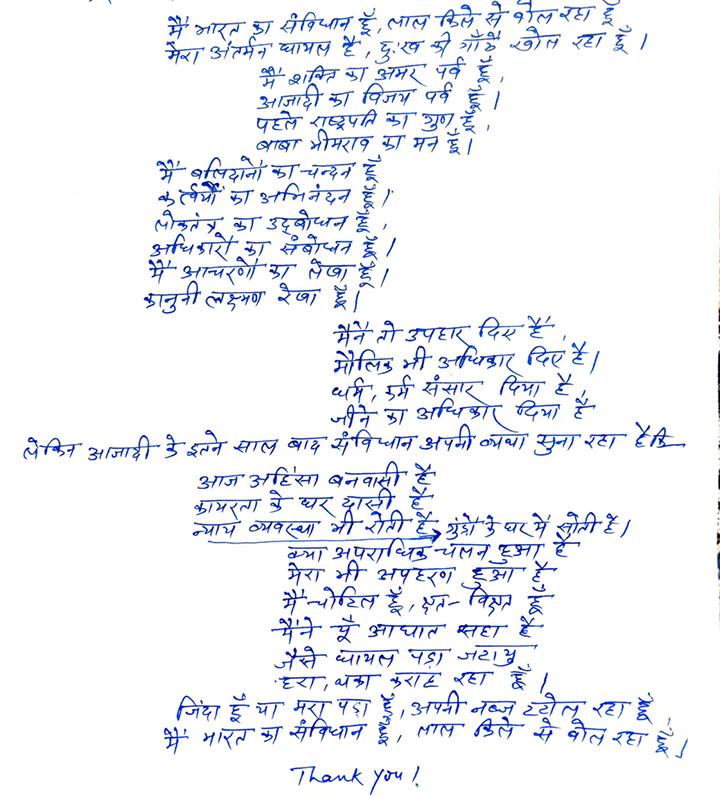 मैं भारत का संविधान हूँ, लाल किले से बोल रहा हूँ
मेरा अंतर्मन घायल है, दुःख की गाँठें खोल रहा हूँ।
मैं शक्ति का अमर पर्व हूँ,
आजादी का विजय पर्व हूँ।
पहले राष्ट्रपति का गुण हूँ,
बाबा भीमराव का मन हूँ।
मैं बलिदानों का चन्दन हूँ
कर्तव्यों का अभिनंदन हूँ।
लोकतंत्र का उद्बोधन हूँ,
अधिकारों का संबोधन हूँ।
मैं आचरणों का लेखा हूँ।
कानुनी लक्ष्मण रेखा हूँ।
मैंने तो उपहार दिए हैं,
मौलिक भी अधिकार दिए है।
धर्म, कर्म संसार दिया है,
जीने का अधिकार दिया है
लेकिन आजादी के इतने साल बाद संविधान अपनी व्यथा सुना रहा है कि
आज अहिंसा बनवासी है
कायरता के घर दासी है
न्याय व्यवस्था भी रोती है गुंडों के घर में सोती है।
क्या अपराधिक चलन हुआ है
मेरा भी अपहरण हुआ है
मैं चोटिल हूँ, क्षत-विक्षत हूँ
मैंने यूँ आघात सहा है
जैसे घायल पड़ा जटायु
हारा, थका कराह रहा हूँ।
जिंदा हूँ या मरा पड़ा हूँ, अपनी नब्ज टटोल रहा हूँ,
मैं भारत का संविधान हूँ, लाल किले से बोल रहा हूँ।
Thank you!